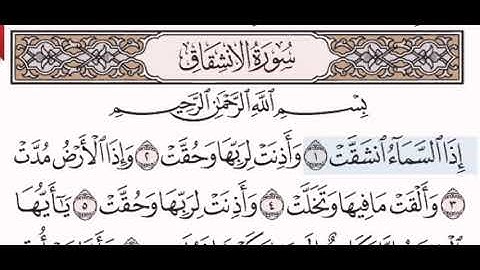 سُورَةُ الِانشِقَاقِ
بِسْمِ اللَّهِ الرَّحْمَٰنِ الرَّحِيمِ
إِذَا السَّمَاءُ انشَقَّتْ ١ وَأَذِنَتْ لِرَبِّهَا وَحُقَّتْ ٢ وَإِذَا الْأَرْضُ مُدَّتْ
٣ وَأَلْقَتْ مَا فِيهَا وَتَخَلَّتْ ٤ وَأَذِنَتْ لِرَبِّهَا وَحُقَّتْ ٥ يَا أَيُّهَا